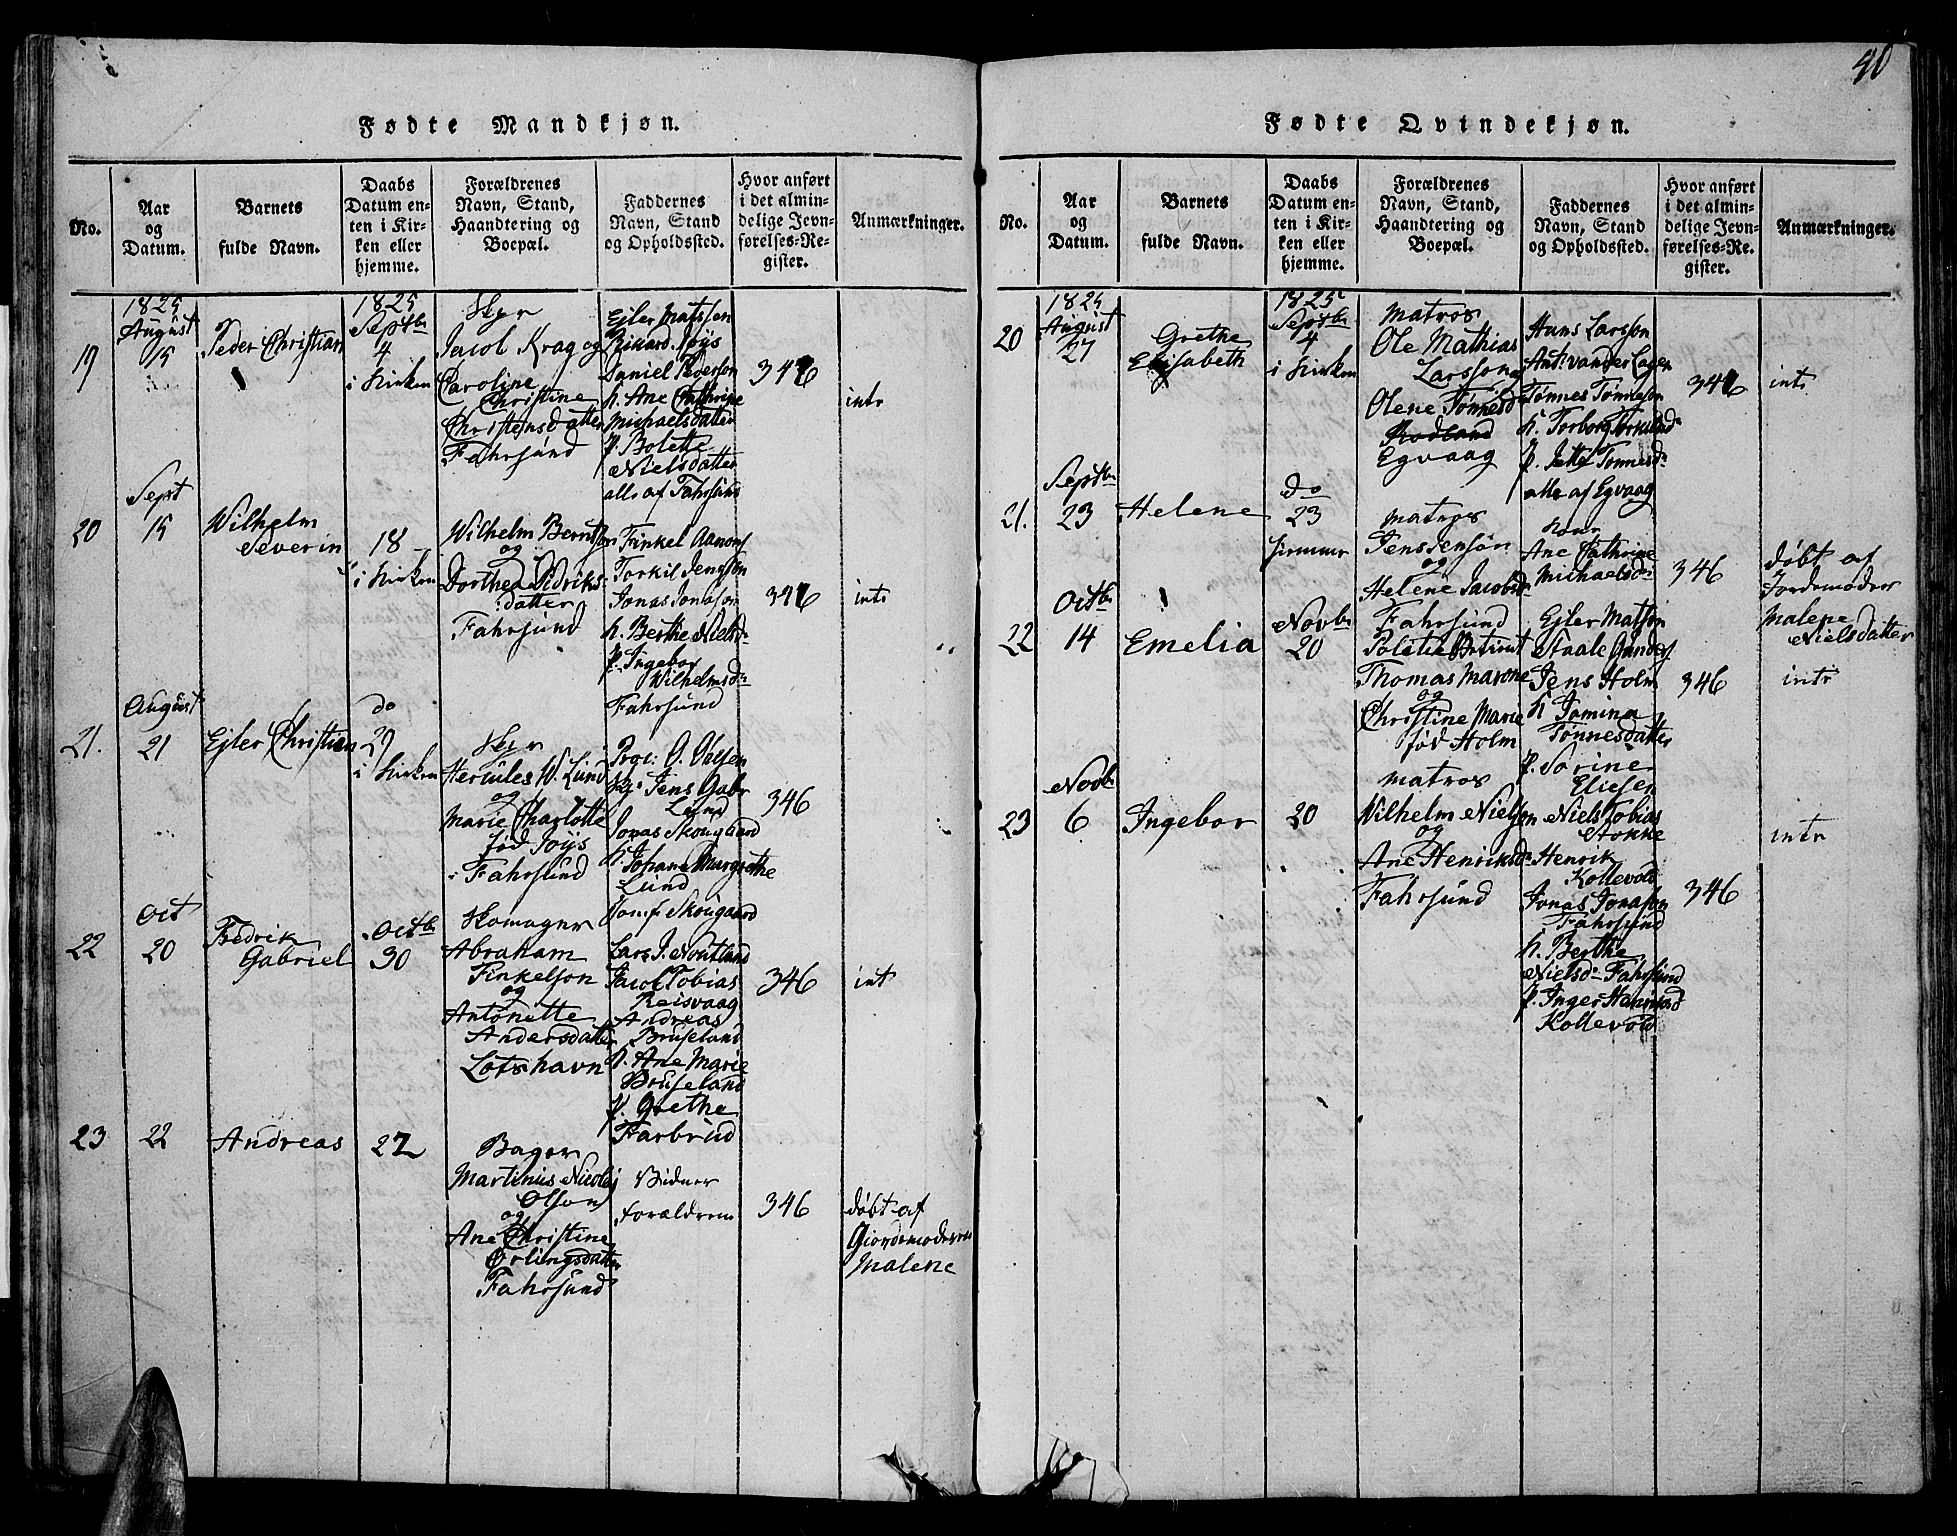 40
Fødte Mandkjøn.
No.
Aar
og
Datum.
Barnets
fulde Navn.
Daabs
Datum en-
ten i Kir-
ken eller
hjemme.
Forældrenes
Navn, Stand,
Haandtering og
Boepæl.
Faddernes
Navn, Stand
og Opholdssted.
Hvor anført
i det almin-
delige Jevn-
førelses-Re-
gister.
Anmærkninger.
19
1825
August
15
Peder Christian
1825
Septbr
4
i Kirken
Jacob Krag og
Caroline
Christine
Christensdatter
Fahrsund
Ejler Matssen
Rikard Joÿs
Daniel Pederson
h. Ane Cathrine
Michaelsdatter
p. Bolette
Nielsdatter
alle af Fahrsund
346
intr
20
Sept
15
Wilhelm
Severin
18
i Kirken
Wilhelm Berntson
og
Dorthea Didriks
datter
Fahrsund
Torkil Jensson
Jonas Jonason
h. Berthe Nielsdr
p. Ingebor
Wilhelmsdr
Fahrsund
346
intr
21.
August
21
Ejler Christian
do
29
i Kirken
Hercules W. Lund
og
Marie Charlotte
fød Joÿs
Fahrsund
Jens Gabr
Lund
Jonas Skougaard
h. Johane Margrethe
Lund
Jomf. Skougaard
346
22
Oct
20
Fredrik
Gabriel
Octbr
30
Skomager
Abraham
Finkelson
og
Antonette
Andersdatter
Lotshavn
Jacob Tobias
Reisvaag
Andreas
Bruseland
h. Ane Marie
Bruseland
p. Grethe
346
int
23
22
Andreas
22
Bager
Martinus Nicolaj
Olson
og
Ane Christine
Erlingsdatter
Fahrsund
forældrene
346
døbt af
Giordemoderen
Malene
Fødte Qvindekjøn.
No.
Aar
og
Datum.
Barnets
fulde Navn.
Daabs
Datum en-
ten i Kir-
ken eller
hjemme.
Forældrenes
Navn, Stand,
Haandtering og
Boepæl.
Faddernes
Navn, Stand
og Opholdssted.
Hvor anført
i det almin-
delige Jevn-
førelses-Re-
gister.
Anmærkninger.
20
1825
August
27
Grethe
Elisabeth
1825
Septbr
4
i Kirken
Matros
Ole Mathias
Larsson og
Olene Tønnesd
Egvaag
Hans Larsson
Tønnes Tønneson
p. Tonnesdr
alle af Egvaag
346
intr
21.
Septbr
23
Helene
do
23
hjemme
Matros
Jens Jensøn
og
Helene Jacobsdr
Fahrsund
Ane Cathrine
Michaelsdr
346
døbt af
Jordemoder
Malene
Nielsdatter
22
Octbr
14
Emelia
Novbr
20
Thomas Marone
og
Christine Marie
fød Holm
Ejler Matson
Jens Holm
h Jomina
Tønnesdatter
p. Sorine
Eliesen
346
intr
23
Novbr
6
Ingebor
20
Matros
Wilhelm Nielson
og
Ane Henriksdr
Fahrsund
Niels Tobias
Stokke
Henrik
Kollevold
Jonas Jonason
Fahrsund
h. Berthe
Nielsdr Fahrsund
p. Inger
Kollevold
346
intr